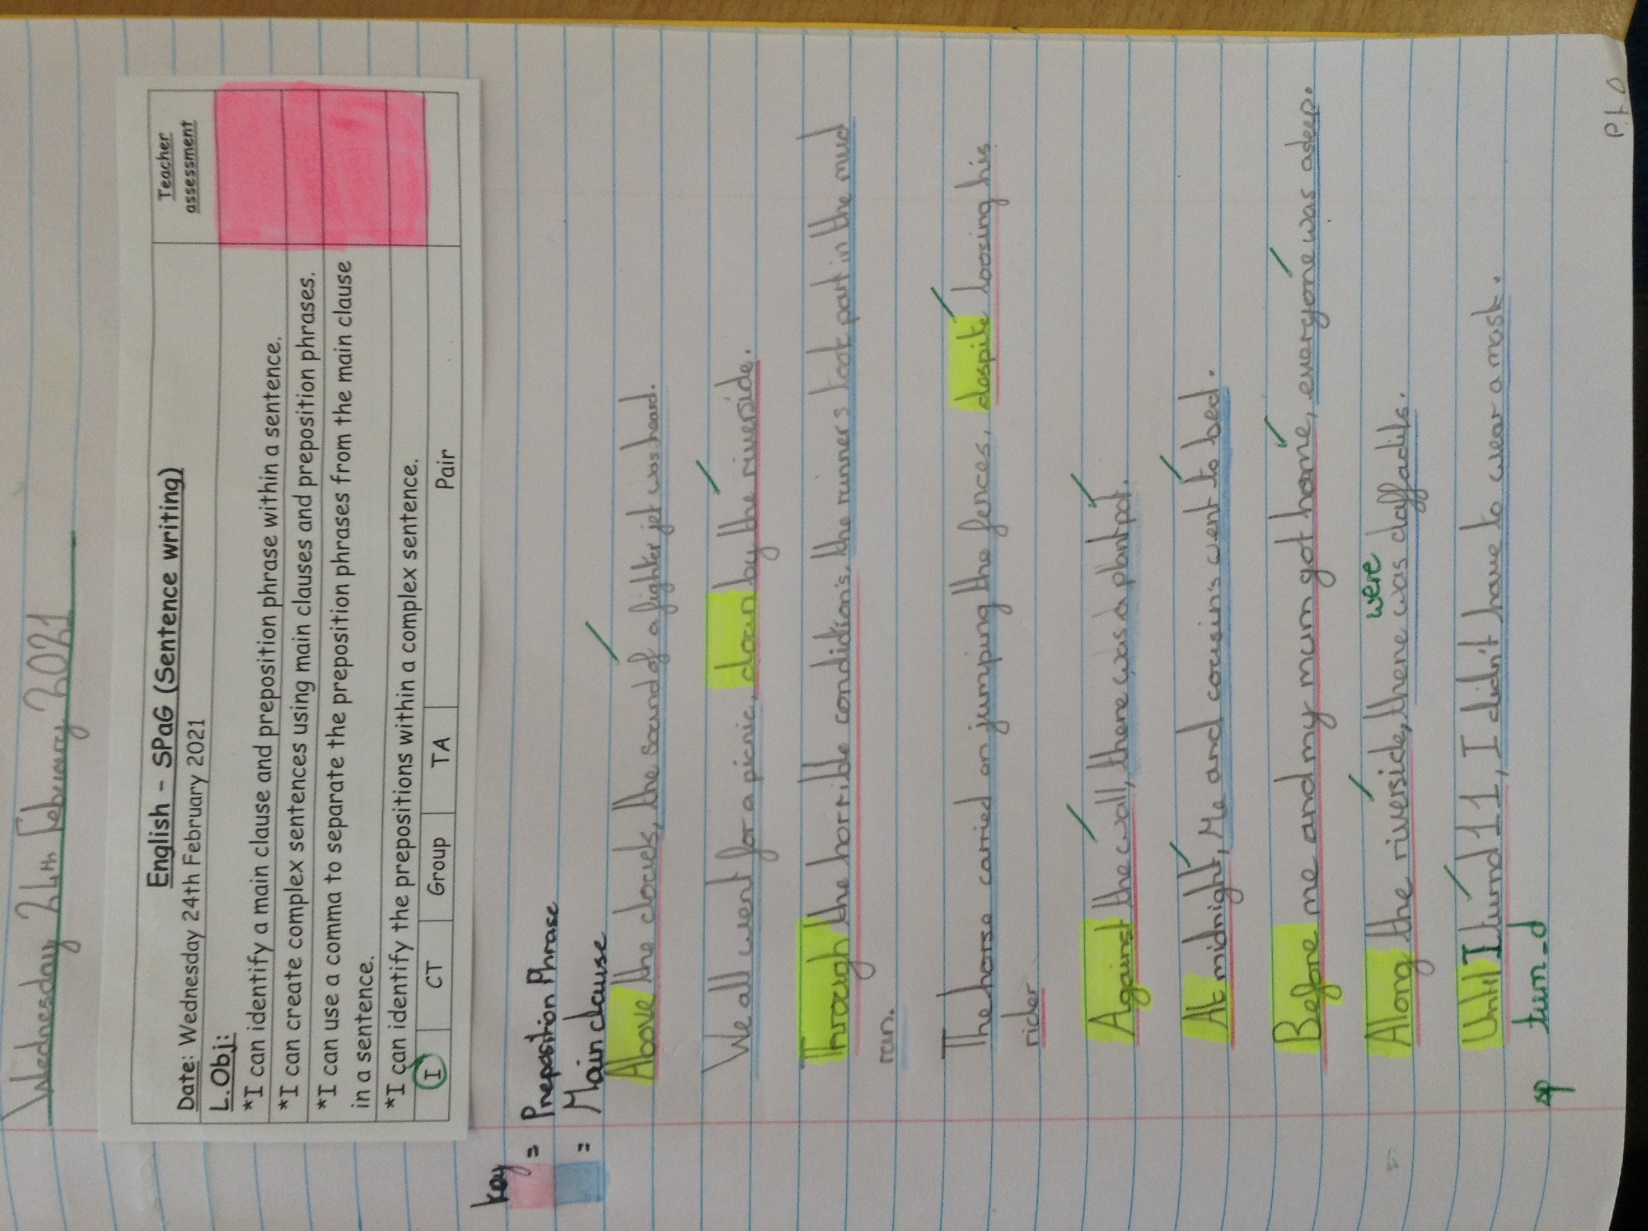 Wednesday 24th February 2021
English - SPaG (Sentence writing)
Date: Wednesday 24th February 2021
Teacher assessment
L.Obj:
*I can identify a main clause and preposition phrase within a sentence.
*I can create complex sentences using main clauses and preposition phrases.
*I can use a comma to separate the preposition phrases from the main clause
in a sentence.
*I can identify the prepositions within a complex sentence.
I CT Group TA Pair
key = Preposition Phrase
= Main clause
Above the clouds, the sound of a fighter jet was heard.
We all went for a picnic, down by the riverside.
Through the horrible condidion's, the runners toot part in the mud
run.
The horse carried on jumping the fences, despite loosing his
rider
Against the wall, there was a plantpot.
At midnight, Me and cousins went to bed.
Before me and my mum got home, everyone was asleep.
were
Along the riverside, there was daffadils.
Until I turnd 11, I didn't have to wear a mask.
sp turn_d
P.t.O